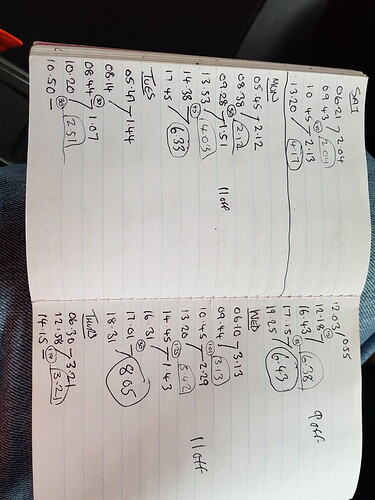 SAT
06.21 / 2.04
09.43 (2.04)
10.45 / 2.13
13.20 (4.17)
MON
05.45 / 2.12
08.38 (2.12)
09.28 / 1.51
13.53 (4.03)
14.38
17.45 (6.33)
11 off
TUES
05.47 / 1.44
08.14
08.44 / 1.07
10.20 (2.51)
10.50 -
12.03 / 0.55
12.18
16.43 (6.38)
17.15
19.25 (6.43)
9 off
WED
06.10 / 3.13
09.44 (3.13)
10.45 / 2.29
13.20 (5.42)
14.45 / 1.43
16.31
17.01 (8.05)
18.31
11 off
THURS
06.30 - 3.21
12.58 (3.21)
14.15